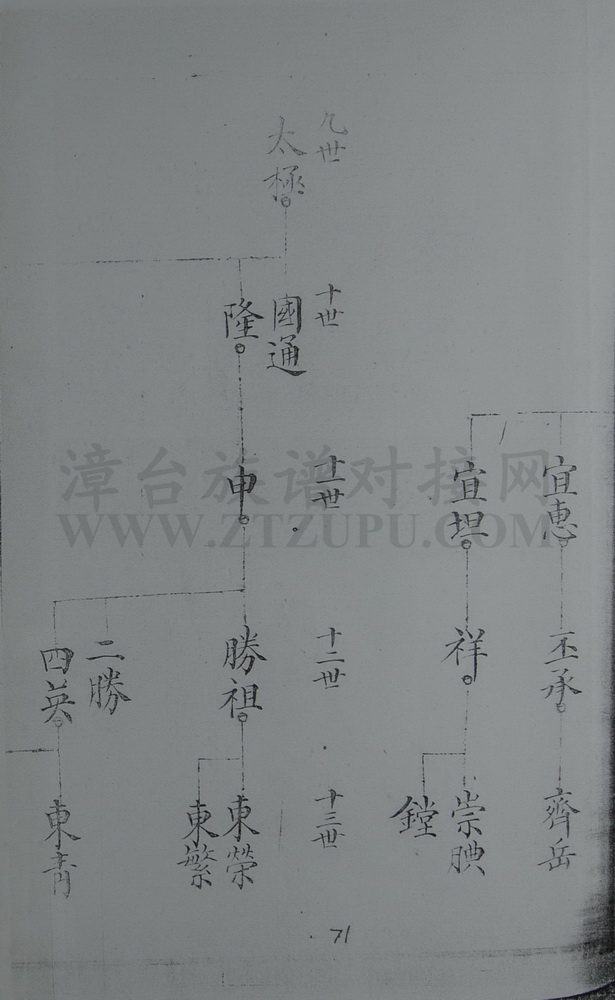 九世
太極
十世
國通
隆
十一世
宜惠
宜坦
申
十二世
丕承
祥
勝祖
二勝
四英
十三世
齊岳
崇腆
鏜
東榮
東繁
東青
71
漳台族谱对接网
WWW.ZTZUPU.COM